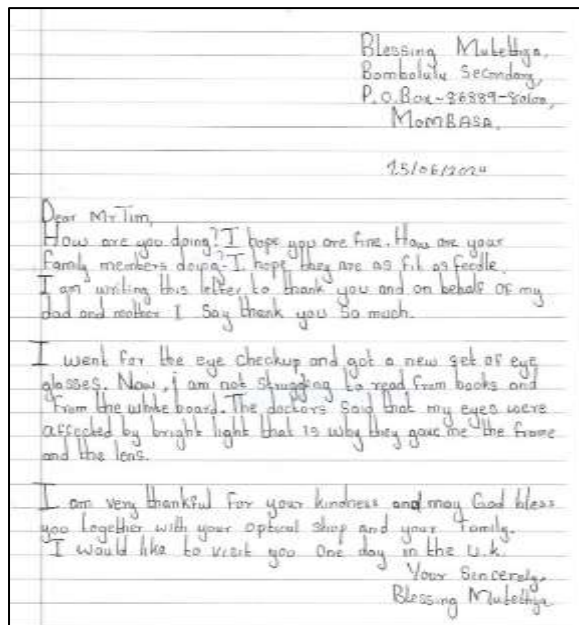 Blessing Mutethya,
Bombolulu Secondary,
P.O.Box-86889-80100,
MOMBASA.
25/06/2024
Dear Mr Tim,
How are you doing? I hope you are fine. How are your
family members doing- I hope they are as fit as feedle.
I am writing this letter to thank you and on behalf of my
dad and mother I say thank you so much.
I went for the eye checkup and got a new set of eye
glasses. Now, i am not struggling to read from books and
from the white board. The doctors said that my eyes were
affected by bright light that is why they gave me the frame
and the lens.
I am very thankful for your kindness and may God bless
you together with your optical shop and your family.
I would like to visit you one day in the U.K.
Your Sincerely,
Blessing Mutethya